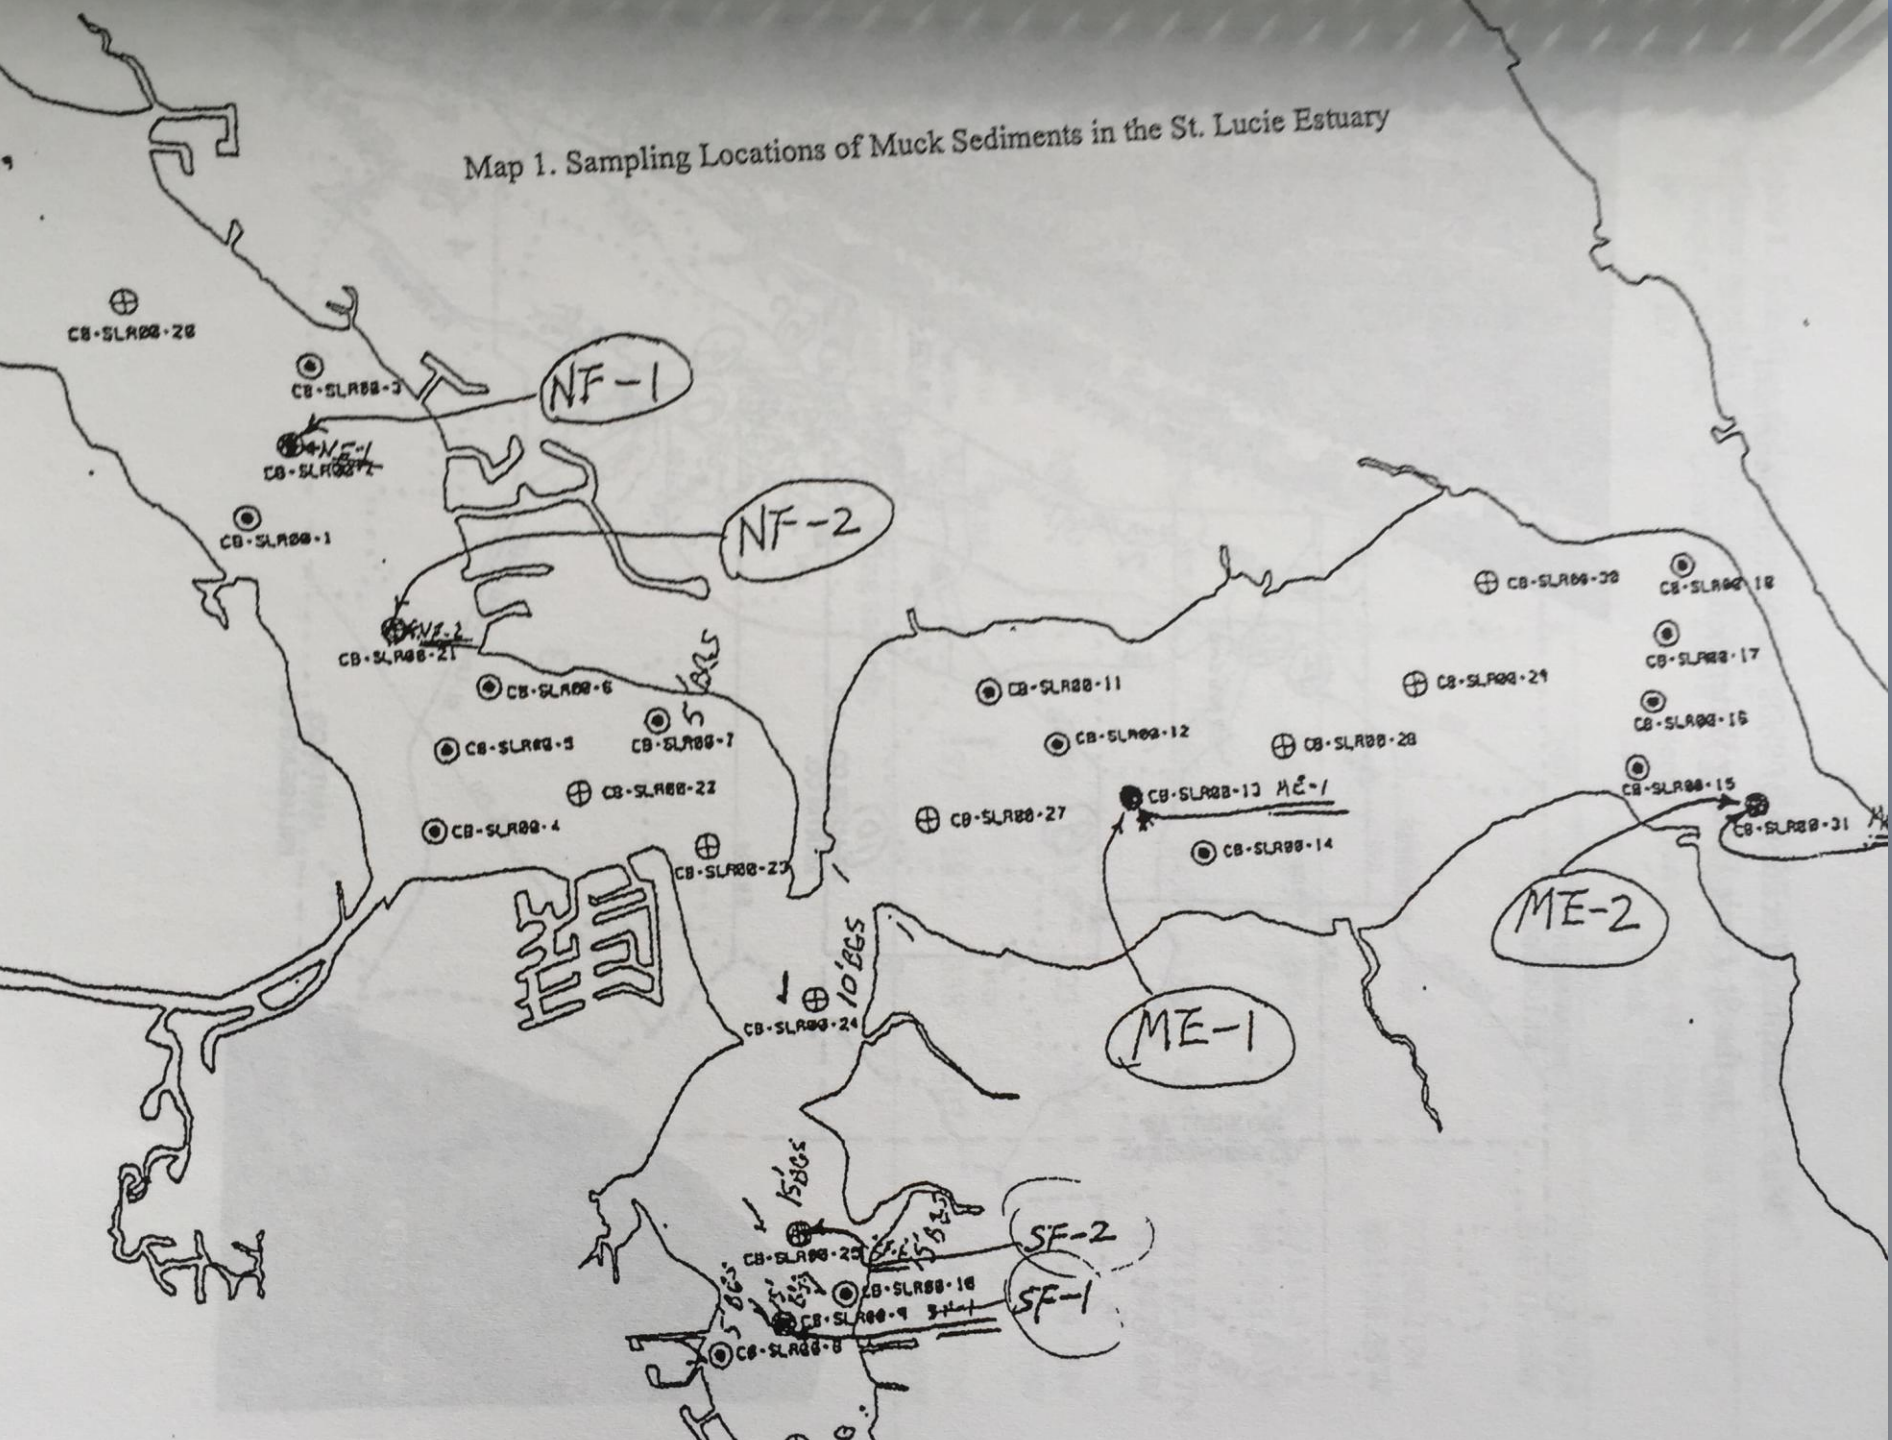 Map 1. Sampling Locations of Muck Sediments in the St. Lucie Estuary
CB-SLR00-20
CB-SLR00-3
NF-1
NF-1
CB-SLR00-2
CB-SLR00-1
NF-2
NF-2
CB-SLR00-21
CB-SLR00-6
5' BGS
CB-SLR00-5
CB-SLR00-7
CB-SLR00-22
CB-SLR00-4
CB-SLR00-23
CB-SLR00-30
CB-SLR00-18
CB-SLR00-17
CB-SLR00-11
CB-SLR00-29
CB-SLR00-16
CB-SLR00-12
CB-SLR00-28
CB-SLR00-15
CB-SLR00-13 ME-1
CB-SLR00-27
CB-SLR00-31
CB-SLR00-14
ME-2
10' BGS
CB-SLR00-24
ME-1
15' BGS
SF-2
CB-SLR00-25
5' BGS
CB-SLR00-10
SF-1
CB-SLR00-9
5' BGS
CB-SLR00-8